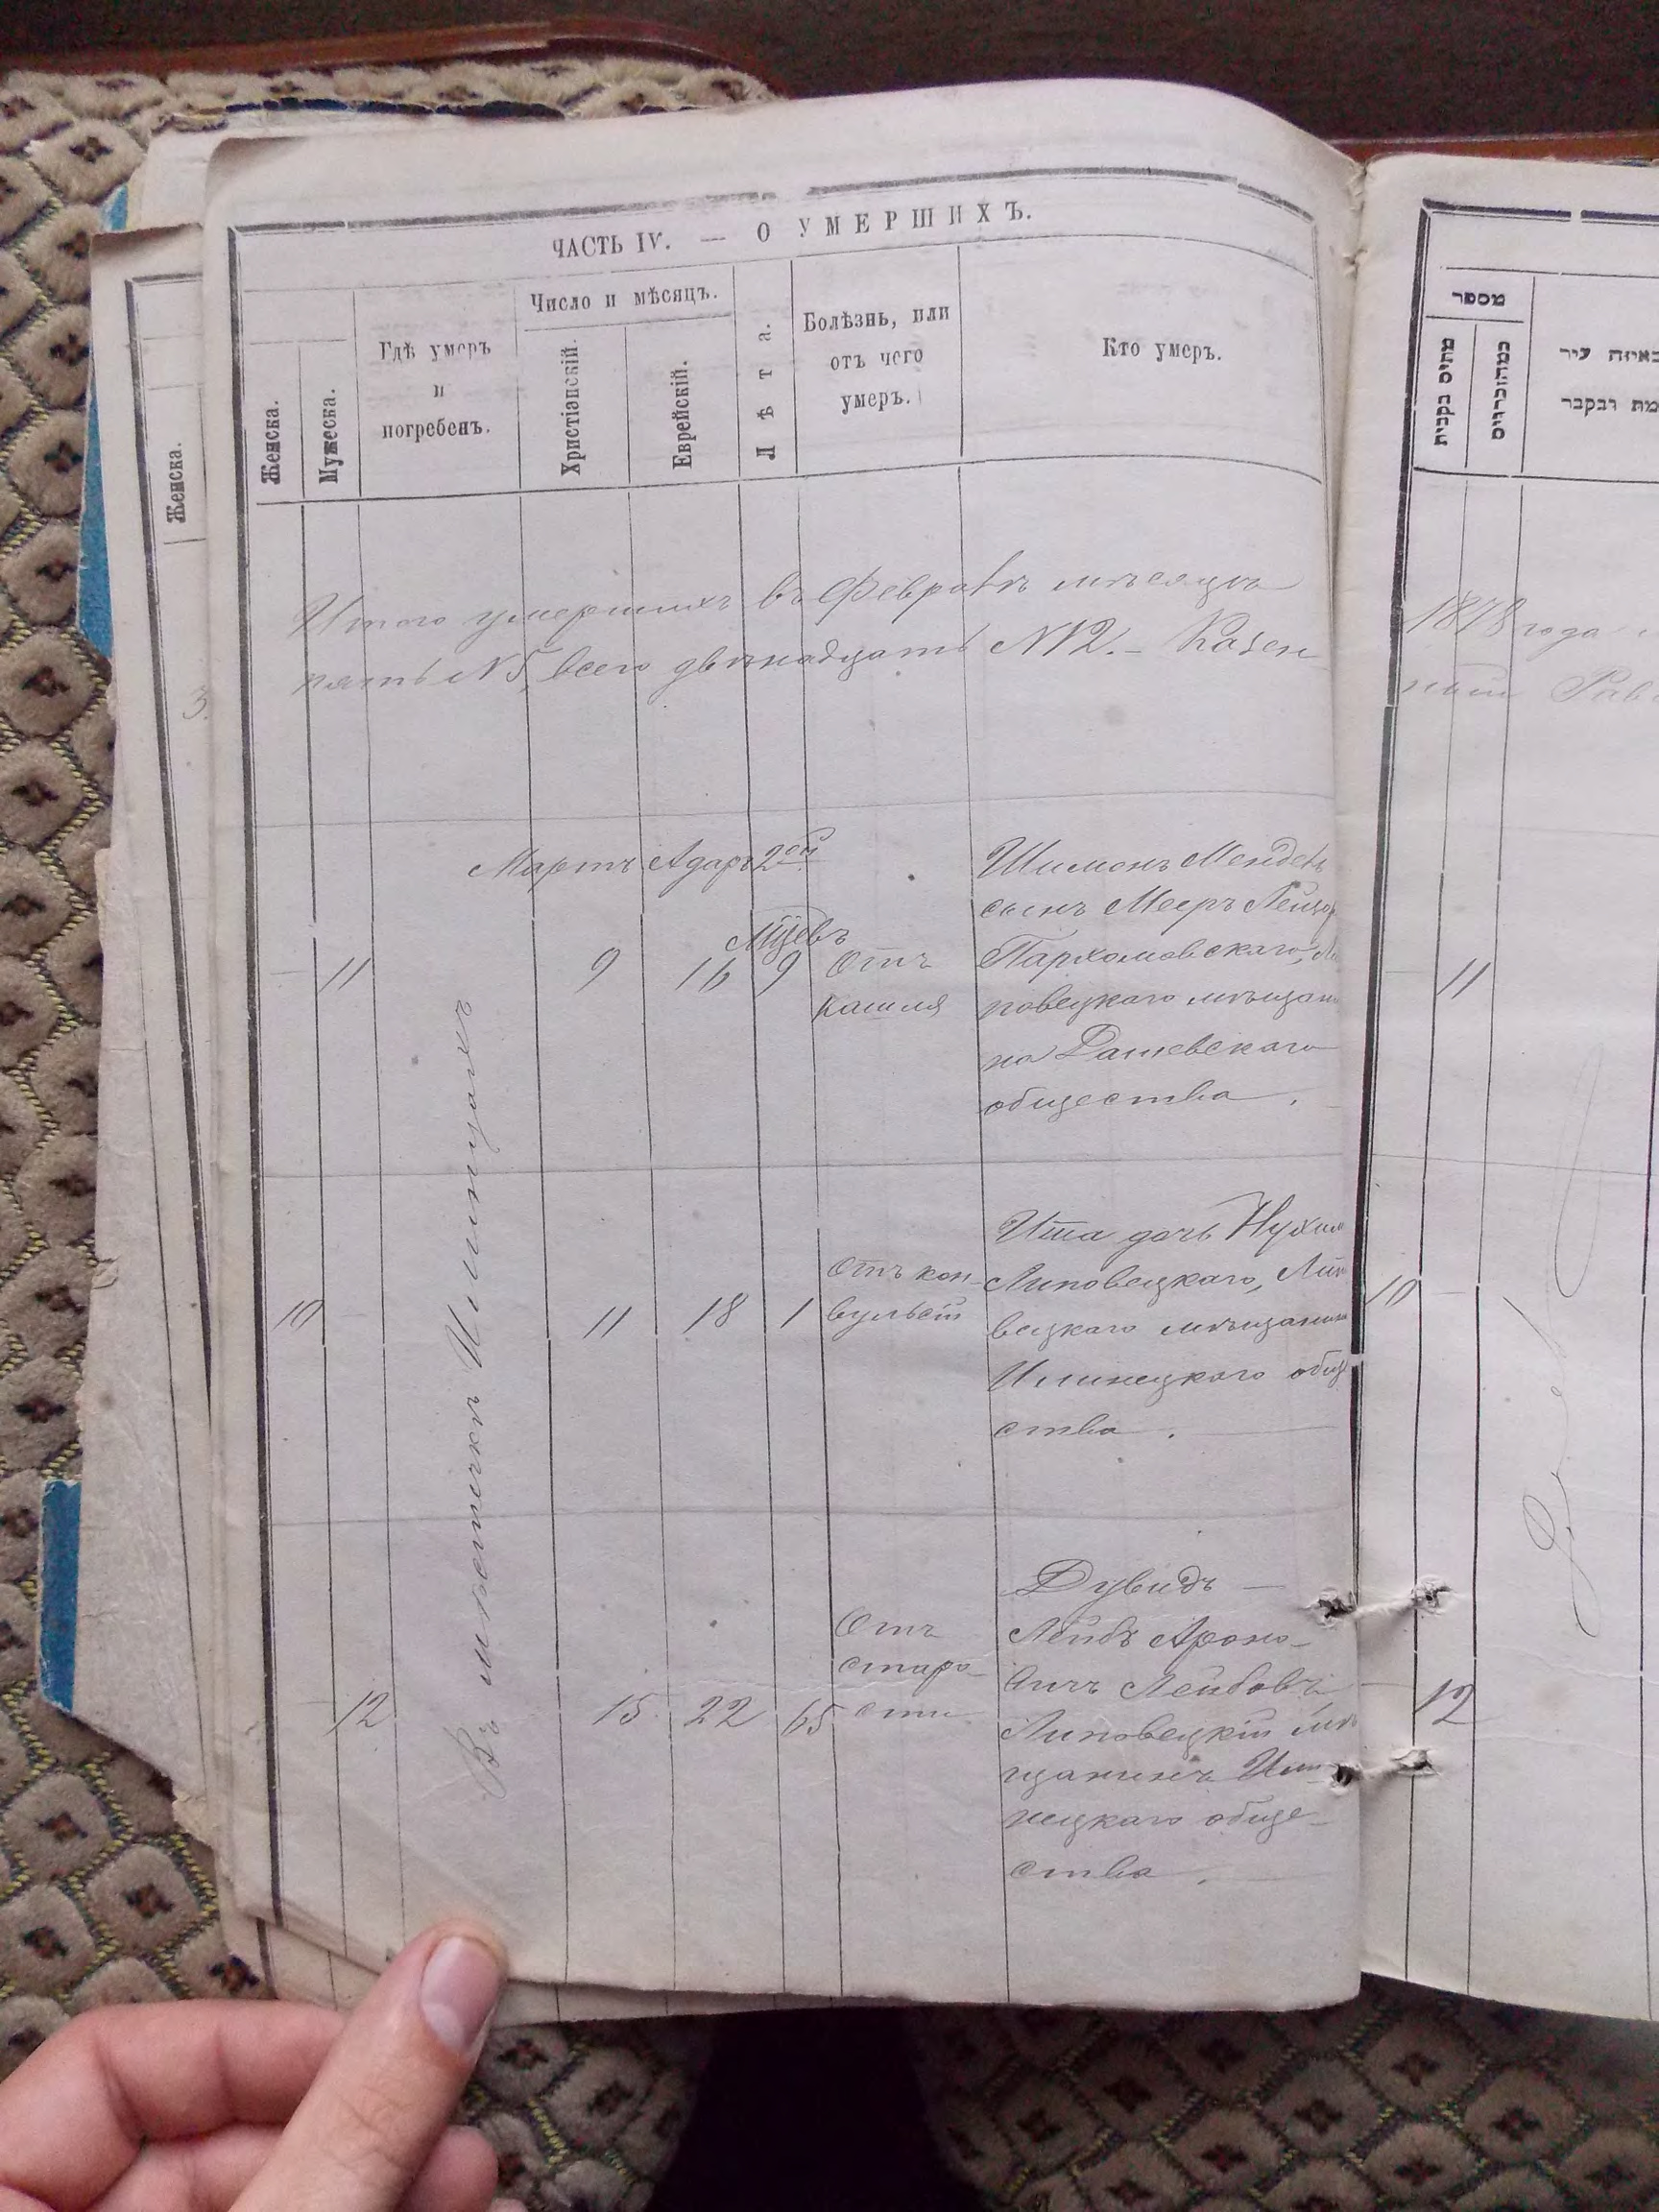 ЧАСТЬ IV. — О УМЕРШИХЪ.
Женска.
Мужеска.
Гдѣ умеръ
и
погребенъ.
Число и мѣсяцъ.
Христіанскій.
Еврейскій.
Лѣта.
Болѣзнь, или
отъ чего
умеръ.
Кто умеръ.
Итого умершихъ въ Февралѣ мѣсяцѣ
пять N 5, всего двѣнадцать N 12. – Казен
Мартъ Адаръ 2ой
Въ мѣстечкѣ Илинцахъ
11
9
16
Мцевъ
9
Отъ
кашля
Шимонъ Мендель
сынъ Мееръ Лейзор
Пархомовскаго, Ли
повецкаго мѣщани
на Дашевскаго
общества.
10
11
18
1
Отъ кон-
вульсій
Ита дочь Нухим
Липовецкаго, Липо
вецкаго мѣщанина
Илинецкаго обще
ства.
12
15
22
65
Отъ
старо-
сти
Дувидъ –
Лейбъ Ароно-
вичъ Лейбовъ,
Липовецкій мѣ
щанинъ Или
нецкаго обще-
ства.
Женска.
3
מספר
מתים בקבית
כמהזכרים
באיזה עיר
מת ונקבר
1878 года
ный Рав
11
10
12